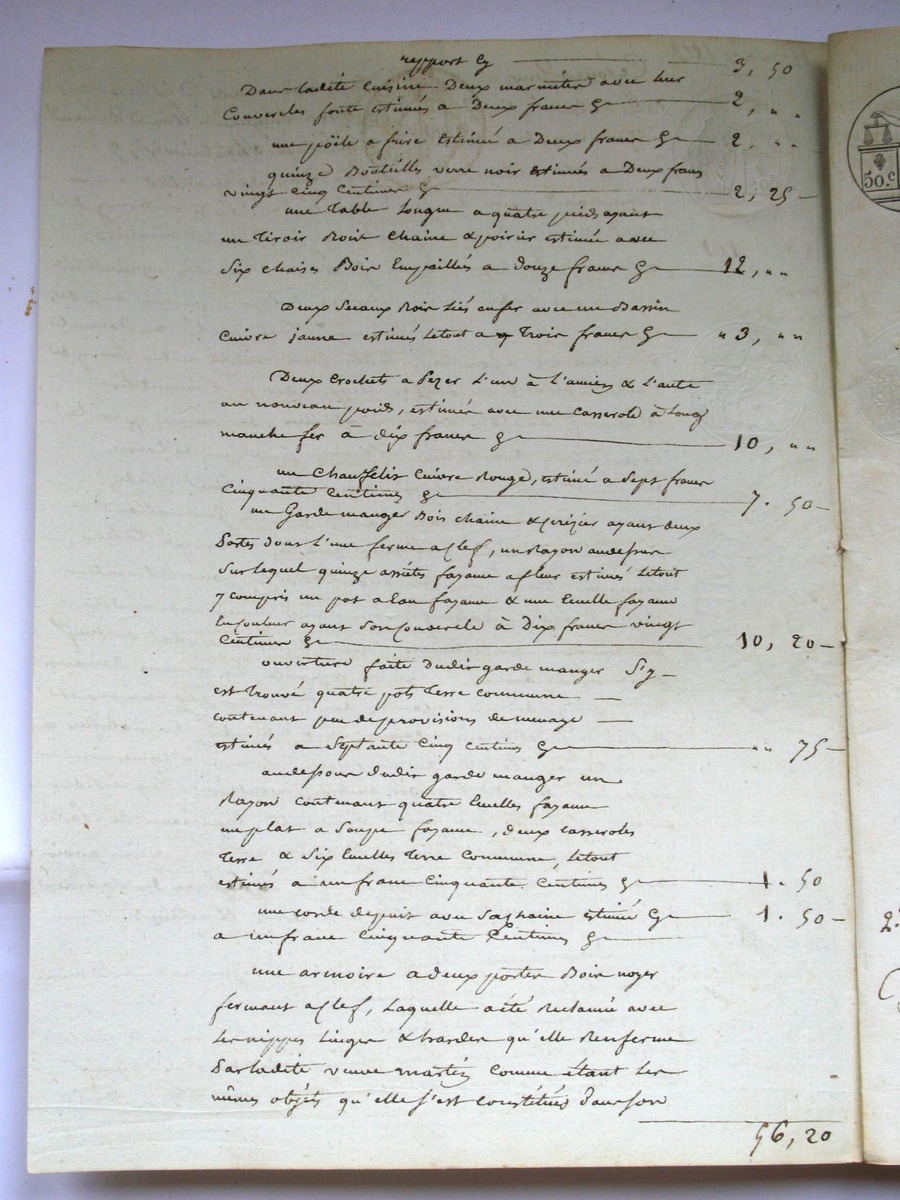 rapport Cy 3, 50
Dans ladite Cuisine Deux marmites avec leur
Couvercles fonte estimés a Deux francs Cy 2, " "
une poële a frire Estimée a Deux francs Cy 2. " "
quinze Bouteilles verre noir estimés a Deux francs
vingt Cinq Centimes Cy 2, 25
une Table Longue a quatre pieds ayant
un Tiroir Bois Chaine & poirier estimée avec
Six chaises Bois Empaillés a Douze francs Cy 12, " "
Deux Seaux Bois liés en fer avec un Bassin
Cuivre jaune estimés Letout a Trois francs Cy " 3, " "
Deux Crochets a Pezer L'un à L'ancien & L'autre
au nouveau poids, estimés avec une Casserole à Long
manche fer à dix francs Cy 10, " "
un Chauffelit Cuivre Rouge, estimé a Sept francs
Cinquante Centimes Cy 7. 50
un Garde manger Bois chaine & ayant deux
Portes dont L'une ferme a Clef, un Rayon audessus
Sur lequel quinze assiétes fayance a fleur estimés Letout
y compris un pot a Eau fayance & une Ecuelle fayance
En Couleur ayant Son Couvercle à Dix francs vingt
Centimes Cy 10, 20
ouverture faite dudit garde manger S'y
est Trouvé quatre pots Terre commune
contenant peu de provisions de menage
estimés a Septante Cinq Centimes Cy " " 75
audessous dudit garde manger un
Rayon contenant quatre Ecuelles fayance
un plat a Soupe fayance, deux casseroles
Terre & Six Ecuelles Terre Commune, Letout
estimés a un franc Cinquante Centimes Cy 1. 50
une corde depuit avec Sa chaine estimée Cy 1. 50
a un franc Cinquante Centimes Cy
une armoire a deux portes Bois noyer
fermant a Clef, Laquelle a été Reclamée avec
Les nippes Linges & hardes qu'elle Renferme
Par ladite veuve comme étant Les
mêmes objets qu'elle s'est Constitués Dans son
56, 20
50.c
2.